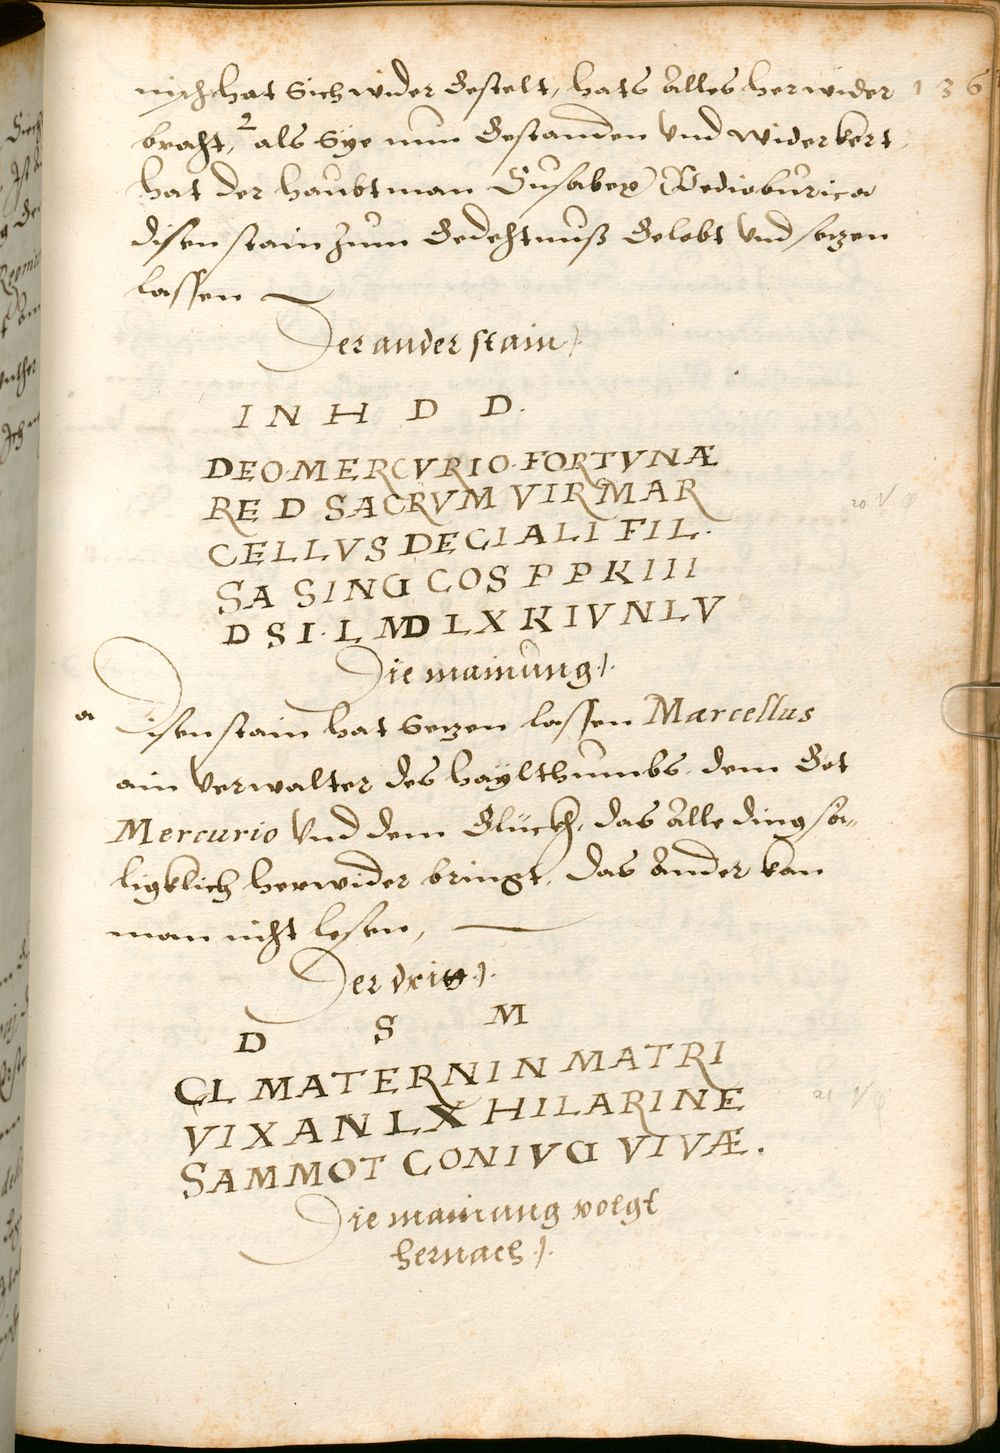 nichts hat Sich wider Gestelt, hats Alles herwider 136
bracht, 2 als Sye nun Gestanden Vnd widerkert,
hat der haubtman Susabex Redioburica
disen stain zum Gedechtnuß Gelobt vnd sezen
lassen
Der ander stain
I N H D D.
DEO·MERCVRIO·FORTVNÆ
RE D SACRVM VIR MAR
CELLVS DECIALI FIL·
SA SING COS P P K III
D S I· L MD L X K IVN LV
20
Die mainung
a Disen stain hat Sezen lassen Marcellus
ain Verwalter des haylthumbs, dem Got
Mercurio Vnd dem Glückh, das Alle ding sä„
ligklich herwider bringt, das Ander kan
man nicht lesen,
Der drit
D S M
CL MATERNIN MATRI
VIX AN LX HILARINE
21
SAMMOT CONIVG VIVÆ.
Die mainung volgt
hernach